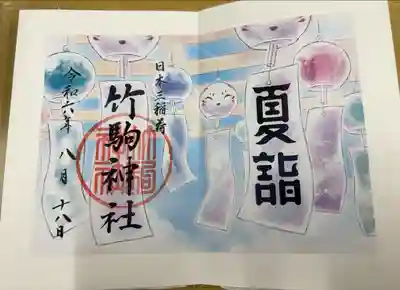 夏詣
日本三稲荷
竹駒神社
令和六年 八月 十八日